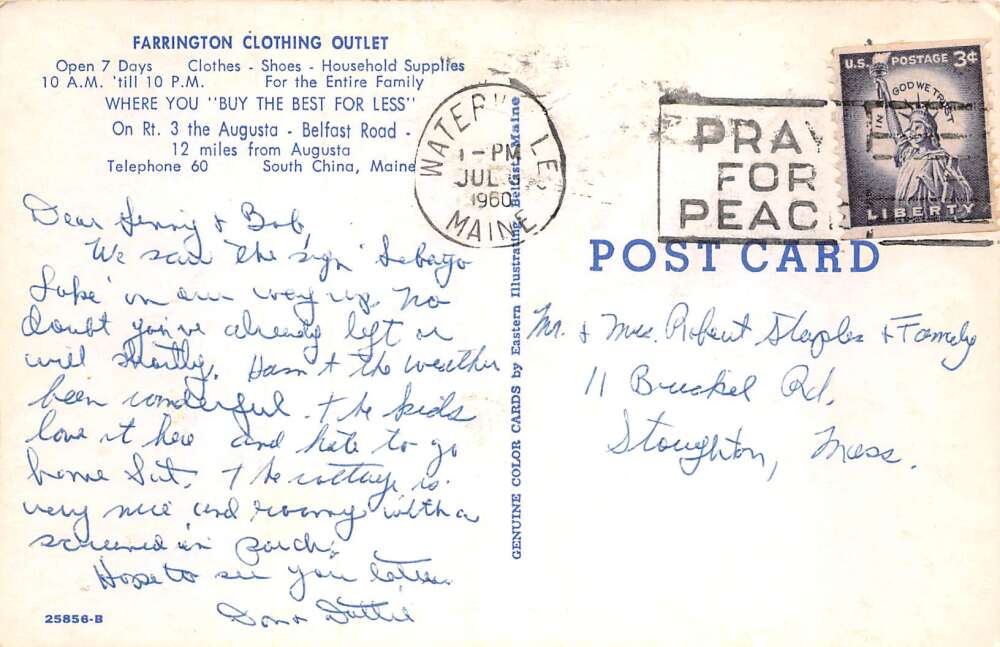 FARRINGTON CLOTHING OUTLET
Open 7 Days Clothes - Shoes - Household Supplies
10 A.M. 'till 10 P.M. For the Entire Family
WHERE YOU "BUY THE BEST FOR LESS"
On Rt. 3 the Augusta - Belfast Road -
12 miles from Augusta
Telephone 60 South China, Maine
Dear Jenny & Bob,
We saw the sign Sebago
Lake on our way up. No
doubt you've already left or
will shortly. Hasn't the weather
been wonderful. The kids
love it here and hate to go
home Sat. The cottage is
very nice and roomy with a
screened in porch.
Hope to see you later.
Don & Dottie
25856-B
GENUINE COLOR CARDS by Eastern Illustrating, Belfast, Maine
WATERVILLE
1-PM
JUL
1960
MAINE
PRAY
FOR
PEACE
U.S. POSTAGE 3¢
IN GOD WE TRUST
LIBERTY
POST CARD
Mr. & Mrs. Robert Staples & Family
11 Rd.
Stoughton, Mass.